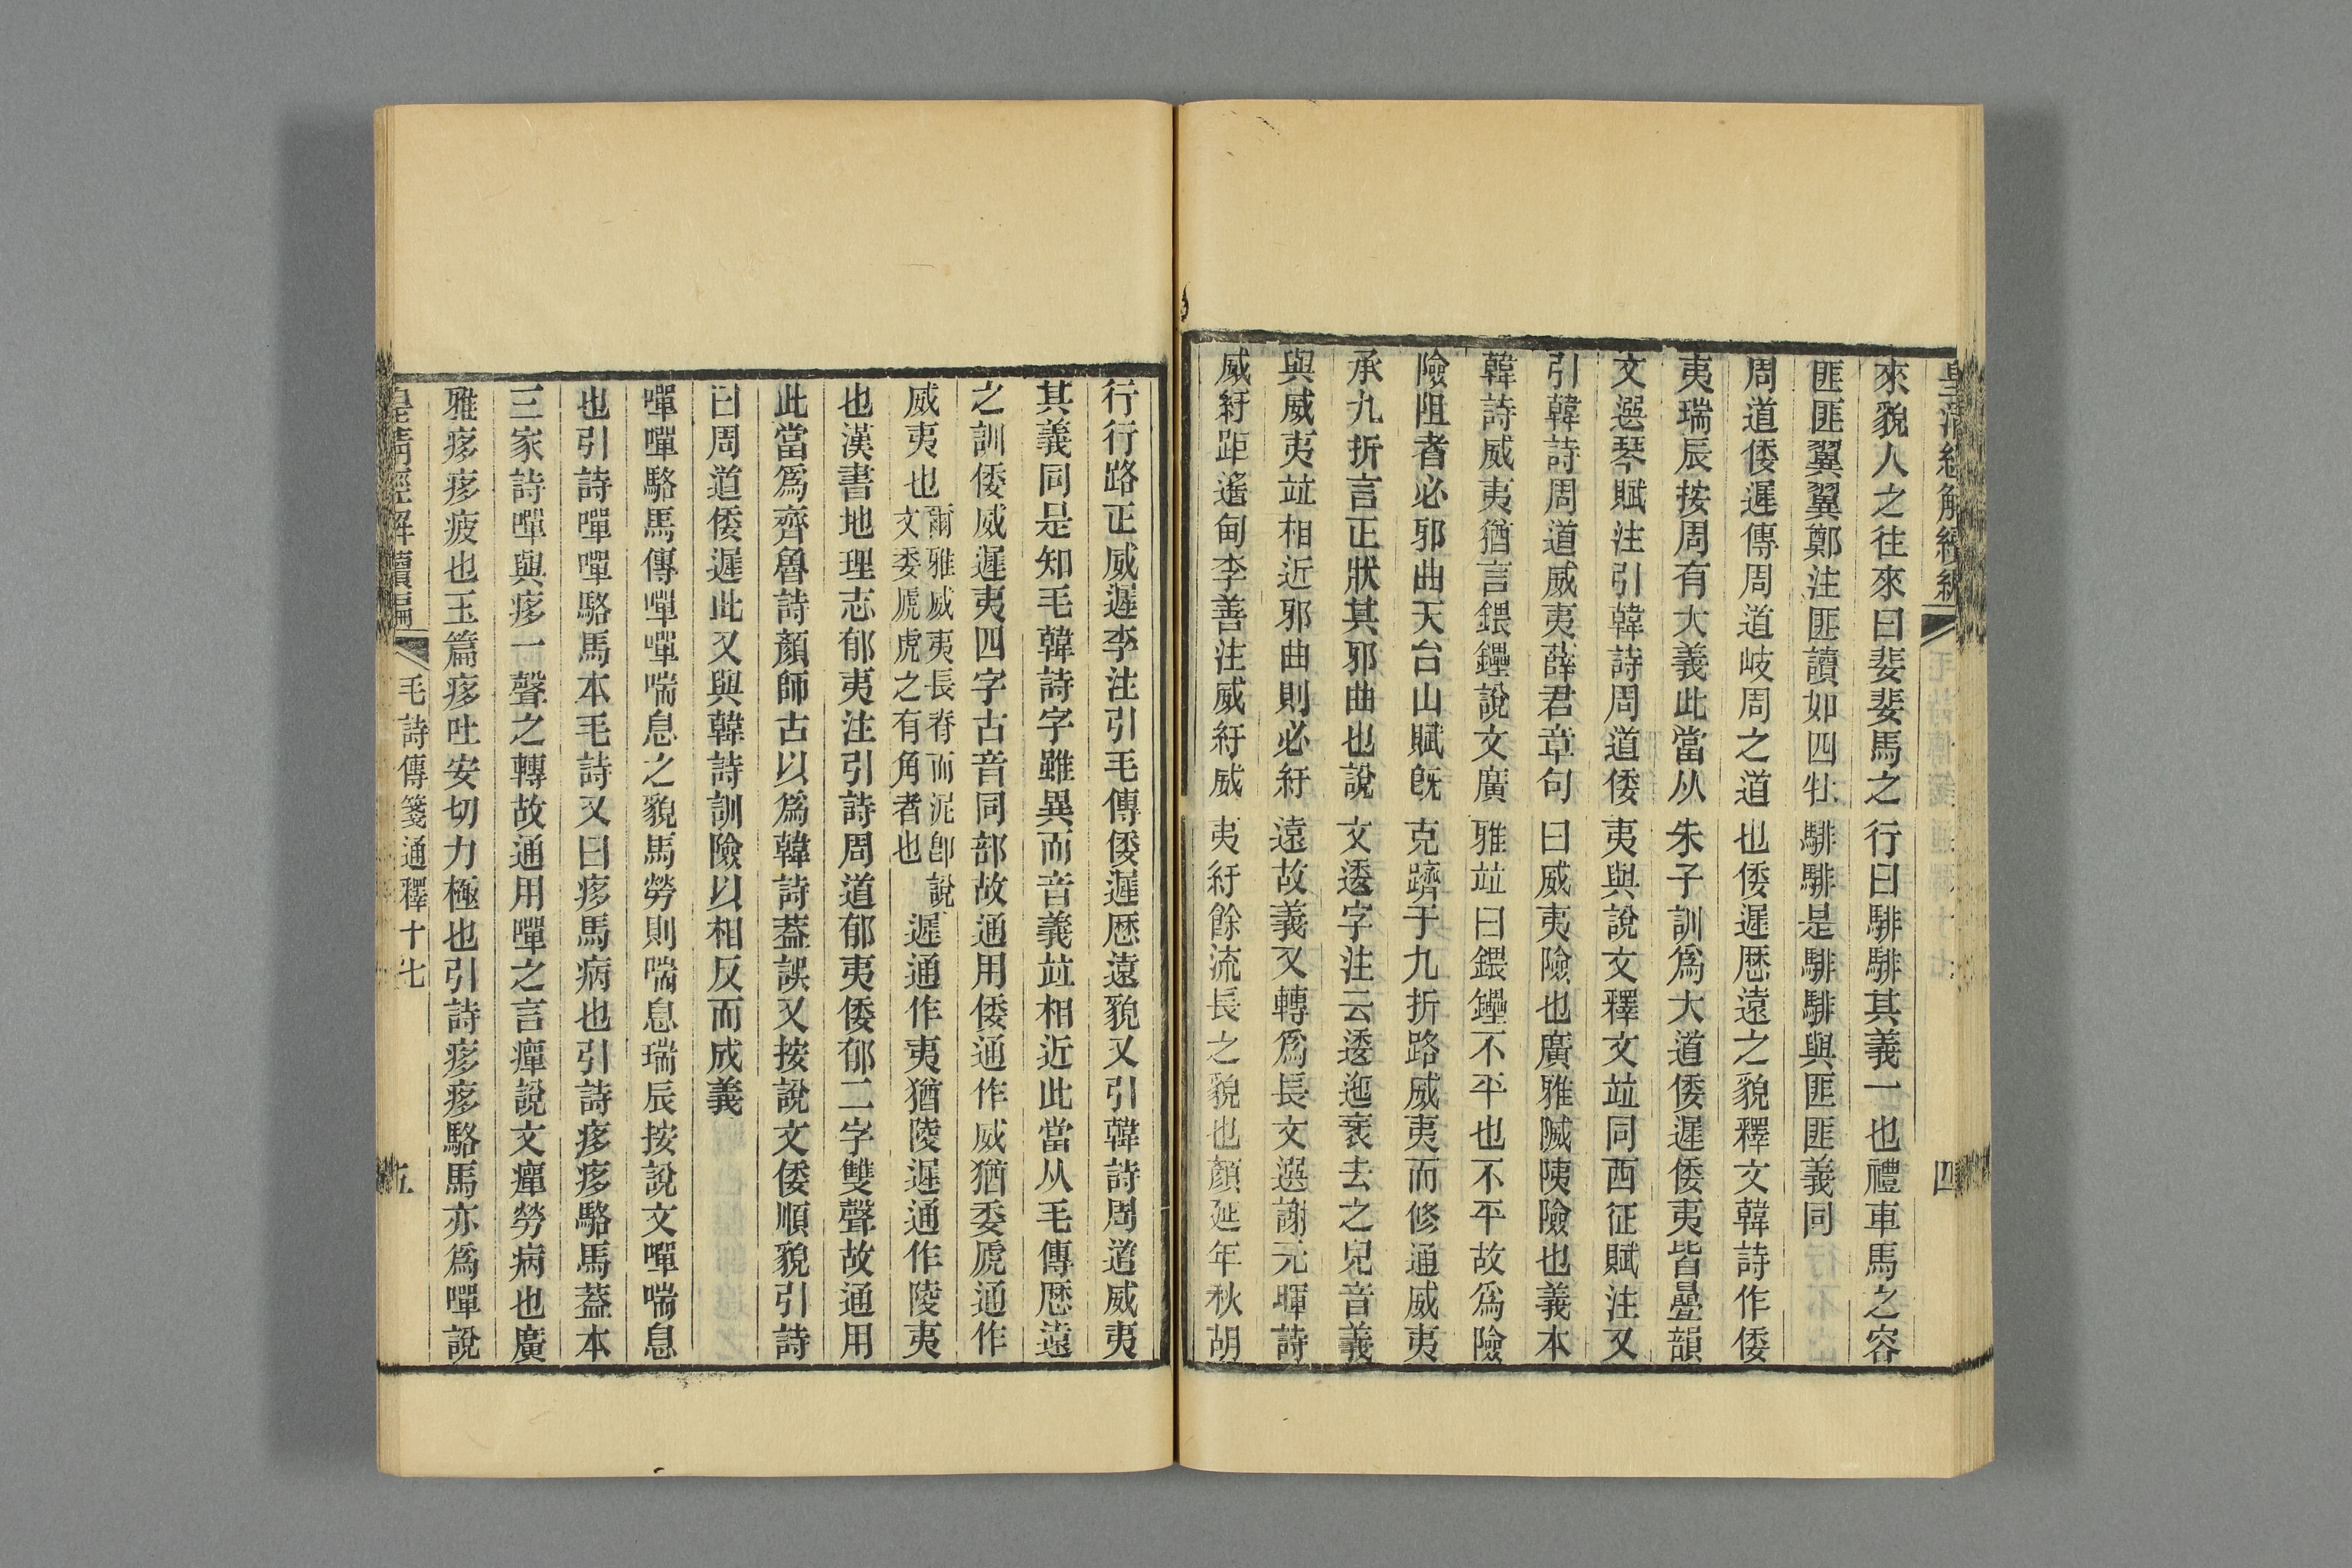 皇清經解續編
四
來貌人之往來曰婓婓馬之行曰騑騑其義一也禮車馬之容
匪匪翼翼鄭注匪讀如四牡騑騑是騑騑與匪匪義同
周道倭遲傳周道岐周之道也倭遲歴遠之貌釋文韓詩作倭
夷瑞辰按周有大義此當从朱子訓爲大道倭遲倭夷皆曡韻
文選琴賦注引韓詩周道倭夷與說文釋文竝同西征賦注又
引韓詩周道威夷薛君章句曰威夷險也廣雅隇陦險也義本
韓詩威夷猶言鍡鑸說文廣雅竝曰鍡鑸不平也不平故爲險
險阻者必邪曲天台山賦旣克隮于九折路威夷而修通威夷
承九折言正狀其邪曲也說文逶字注云逶迆衺去之皃音義
與威夷竝相近邪曲則必紆遠故義又轉爲長文選謝元暉詩
威紆距遙甸李善注威紆威夷紆餘流長之貌也顏延年秋胡
行行路正威遲李注引毛傳倭遲歴遠貌又引韓詩周道威夷
其義同是知毛韓詩字雖異而音義竝相近此當从毛傳歴遠
之訓倭威遲夷四字古音同部故通用倭通作威猶委虒通作
威夷也爾雅威夷長脊而泥卽說文委虒虎之有角者也遲通作夷猶陵遲通作陵夷
也漢書地理志郁夷注引詩周道郁夷倭郁二字雙聲故通用
此當爲齊魯詩顏師古以爲韓詩葢誤又按說文倭順貌引詩
曰周道倭遲此又與韓詩訓險以相反而成義
嘽嘽駱馬傳嘽嘽喘息之貌馬勞則喘息瑞辰按說文嘽喘息
也引詩嘽嘽駱馬本毛詩又曰痑馬病也引詩痑痑駱馬葢本
三家詩嘽與痑一聲之轉故通用嘽之言癉說文癉勞病也廣
雅痑痑疲也玉篇痑吐安切力極也引詩痑痑駱馬亦爲嘽說
皇清經解續編
毛詩傳箋通釋十七
五